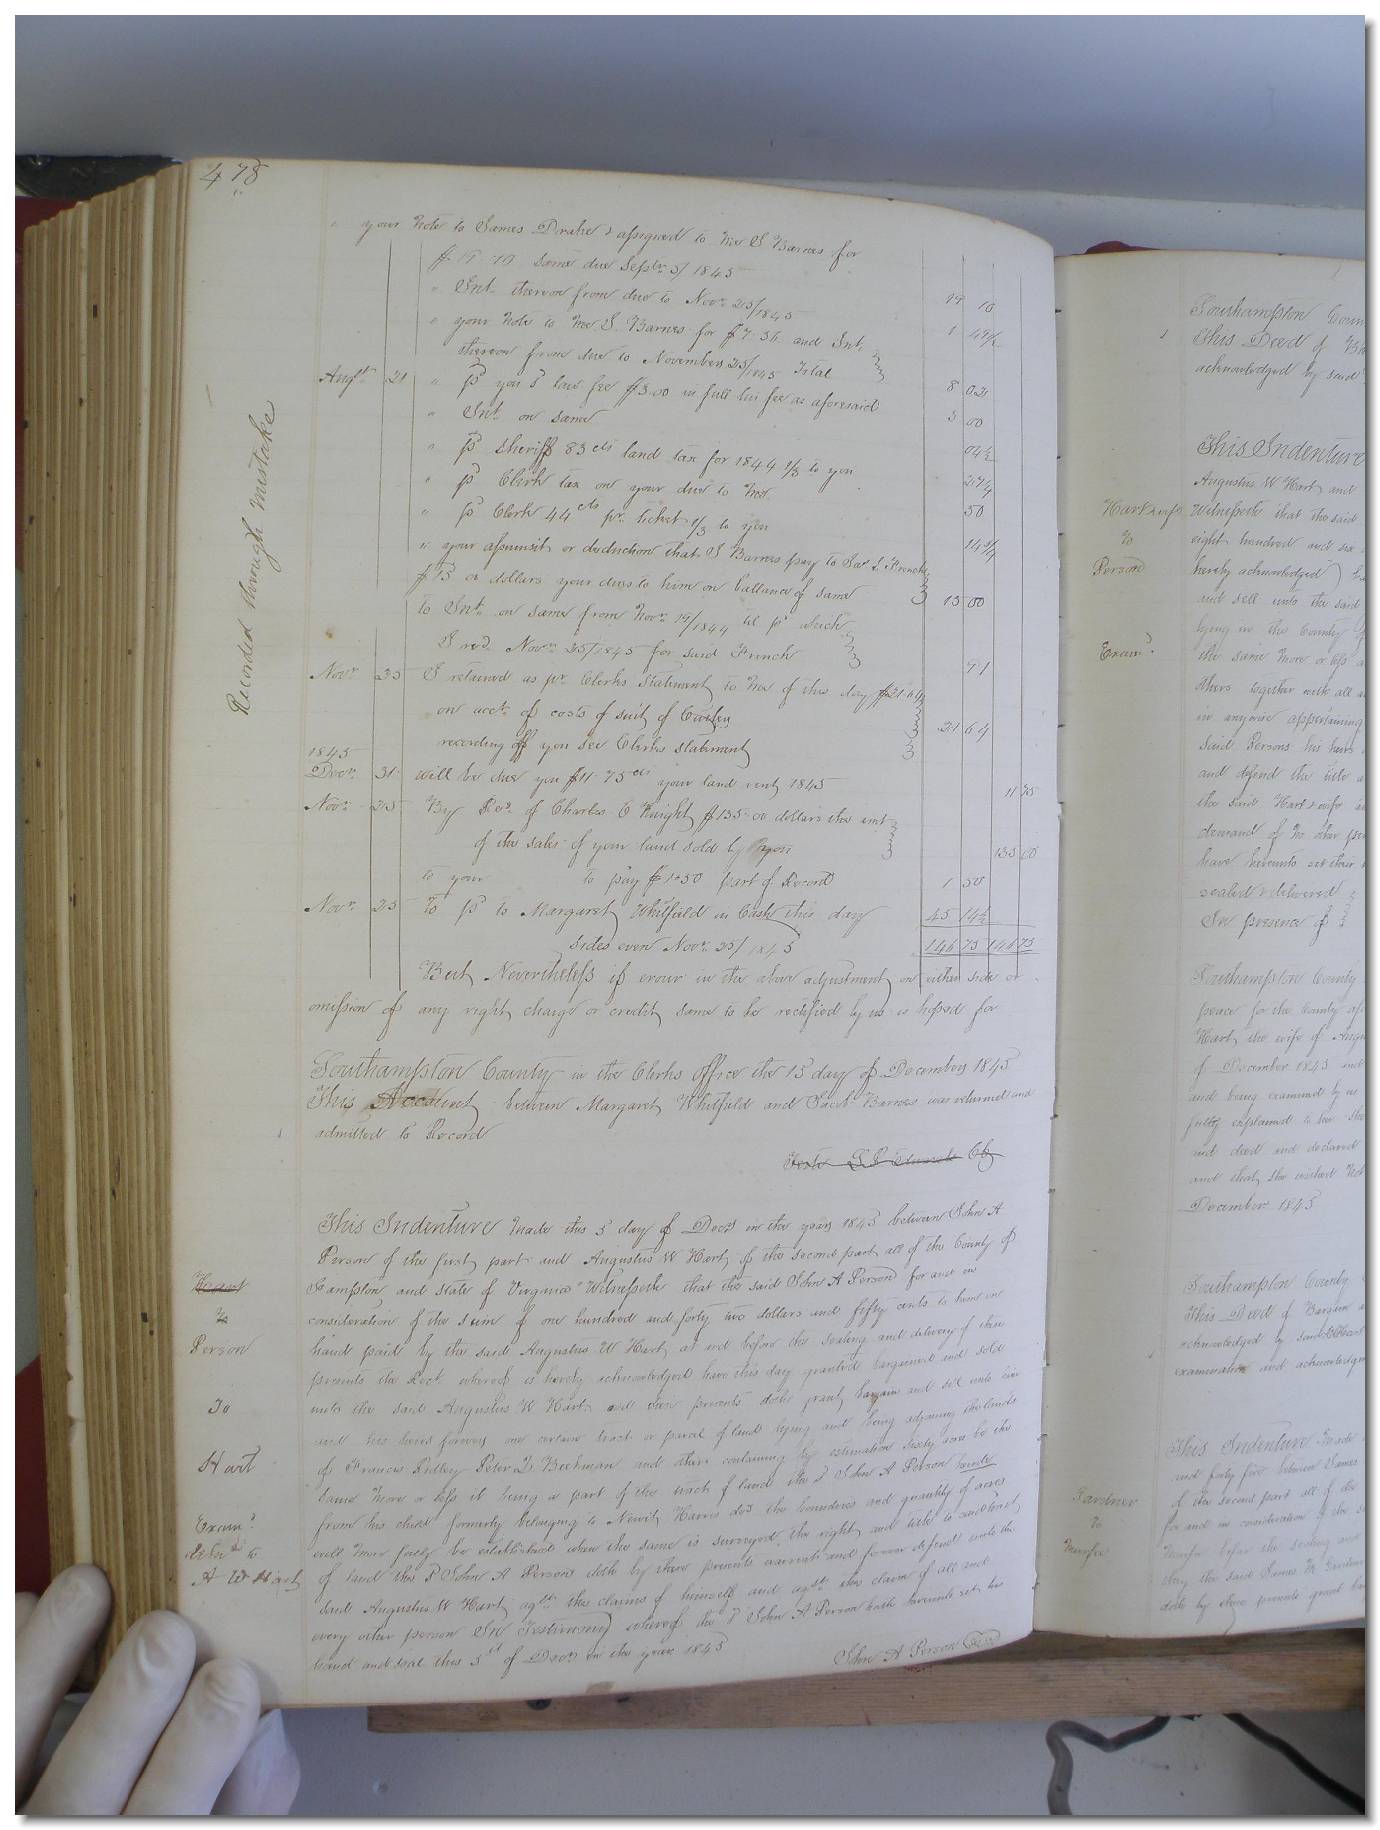 478
Recorded through mistake
" your note to James Drake & assigned to me J Barnes for
$17.10 same due Septr 5/1845
" Int. thereon from due to Novr. 25/1845 17 10
" your note to me J. Barnes for $7.56 and Int. 1
thereon from due to November 25/1845 Total
Augt. 21 " pd you & law fee $3.00 in full his fee as aforesaid 8 02
" Int. on same 3 00
" pd Sheriff 83 cts land tax for 1844 1/3 to you 04½
" pd Clerk tax on your due to me
" pd Clerk 44cts pr. ticket 1/3 to you 50
" your assumsit or deduction that J Barnes pay to L. French
$15 or dollars your dues to him on ballance of same 15 00
To Int. on same from Novr. 19/1844 til pd which
I recd. Novr. 25/1845 for said French 91
Novr. 25 I retained as pr. Clerks Statement to me of this day $21.64
on acct. of costs of suit of
recording off you see Clerks Statement 21 64
1845
Decr. 31 will be due you $11.75cts your land rent 1845 11 75
Novr. 25 By Recd. of Charles C Knight $135.00 dollars the amt
of the sales of your land sold by you 135 00
to your to pay $1.50 part of Record 1 50
Novr. 25 To pd to Margaret Whitfield in Cash this day 45 14½
Sides even Novr. 25/1845 146 75 146 75
But Nevertheless if errour in the above adjustment on either side or
omission of any right charge or credit same to be rectified by us is hoped for
Southampton County in the Clerks office the 15 day of December 1845
This Account between Margaret Whitfield and Jacob Barnes was returned and
admitted to Record
Teste L R Edwards Clk
This Indenture made this 5 day of Decr in the year 1845 between John A
Person of the first part and Augustus W Hart of the second part all of the County of
Hampton and State of Virginia Witnesseth that the said John A Person for and in
consideration of the Sum of one hundred and forty two dollars and fifty cents to him in
hand paid by the said Augustus W Hart at and before the sealing and delivery of these
presents the Rect. whereof is hereby acknowledged have this day granted bargained and sold
unto the said Augustus W Hart and these presents doth grant bargain and sell unto him
and his heirs forever one certain tract or parcel of land lying and being adjoining the lands
of Francis Ridley Peter D Beekman and others containing by estimation sixty acres be the
same more or less it being a part of the tract of land the sd John A Person
from his child formerly belonging to Newit Harris decd the boundaries and quantity of acres
will more fully be established when the same is surveyed the right and title to said tract
of land the sd John A Person doth by these presents warrant and forever defend unto the
said Augustus W Hart agst. the claims of himself and agst. the claim of all and
every other person In Testimony whereof the sd John A Person hath hereunto set his
hand and seal this 5th of Decr in the year 1845
John A Person (Seal)
Heart
To
Person
To
Hart
Exam.d
Deld to
A W Hart
Southampton Coun
This Deed of
acknowledged by said
Hart & wife
To
Person
Exam.d
This Indenture
Augustus W Hart and
Witnesseth that the said
eight hundred and six
hereby acknowledged)
and sell unto the said
lying in the County
the same more or less
others together with all
in anywise appertaining
said Persons his heirs
and defend the title
the said Hart & wife
demand of no other per
have hereunto set their
sealed & delivered
In presence of
Southampton County
peace for the County
Hart the wife of Augu
of December 1845 and
and being examined by us
fully explained to her
act deed and declared
and that she wished not
December 1845
Southampton County
This Deed of Bargain
acknowledged by said Hart
examination and acknowledgm
Gardner
To
This Indenture made
and forty five between James
of the second part all of the
for and in consideration of the
before the sealing and
day the said James M Gardner
doth by these presents grant